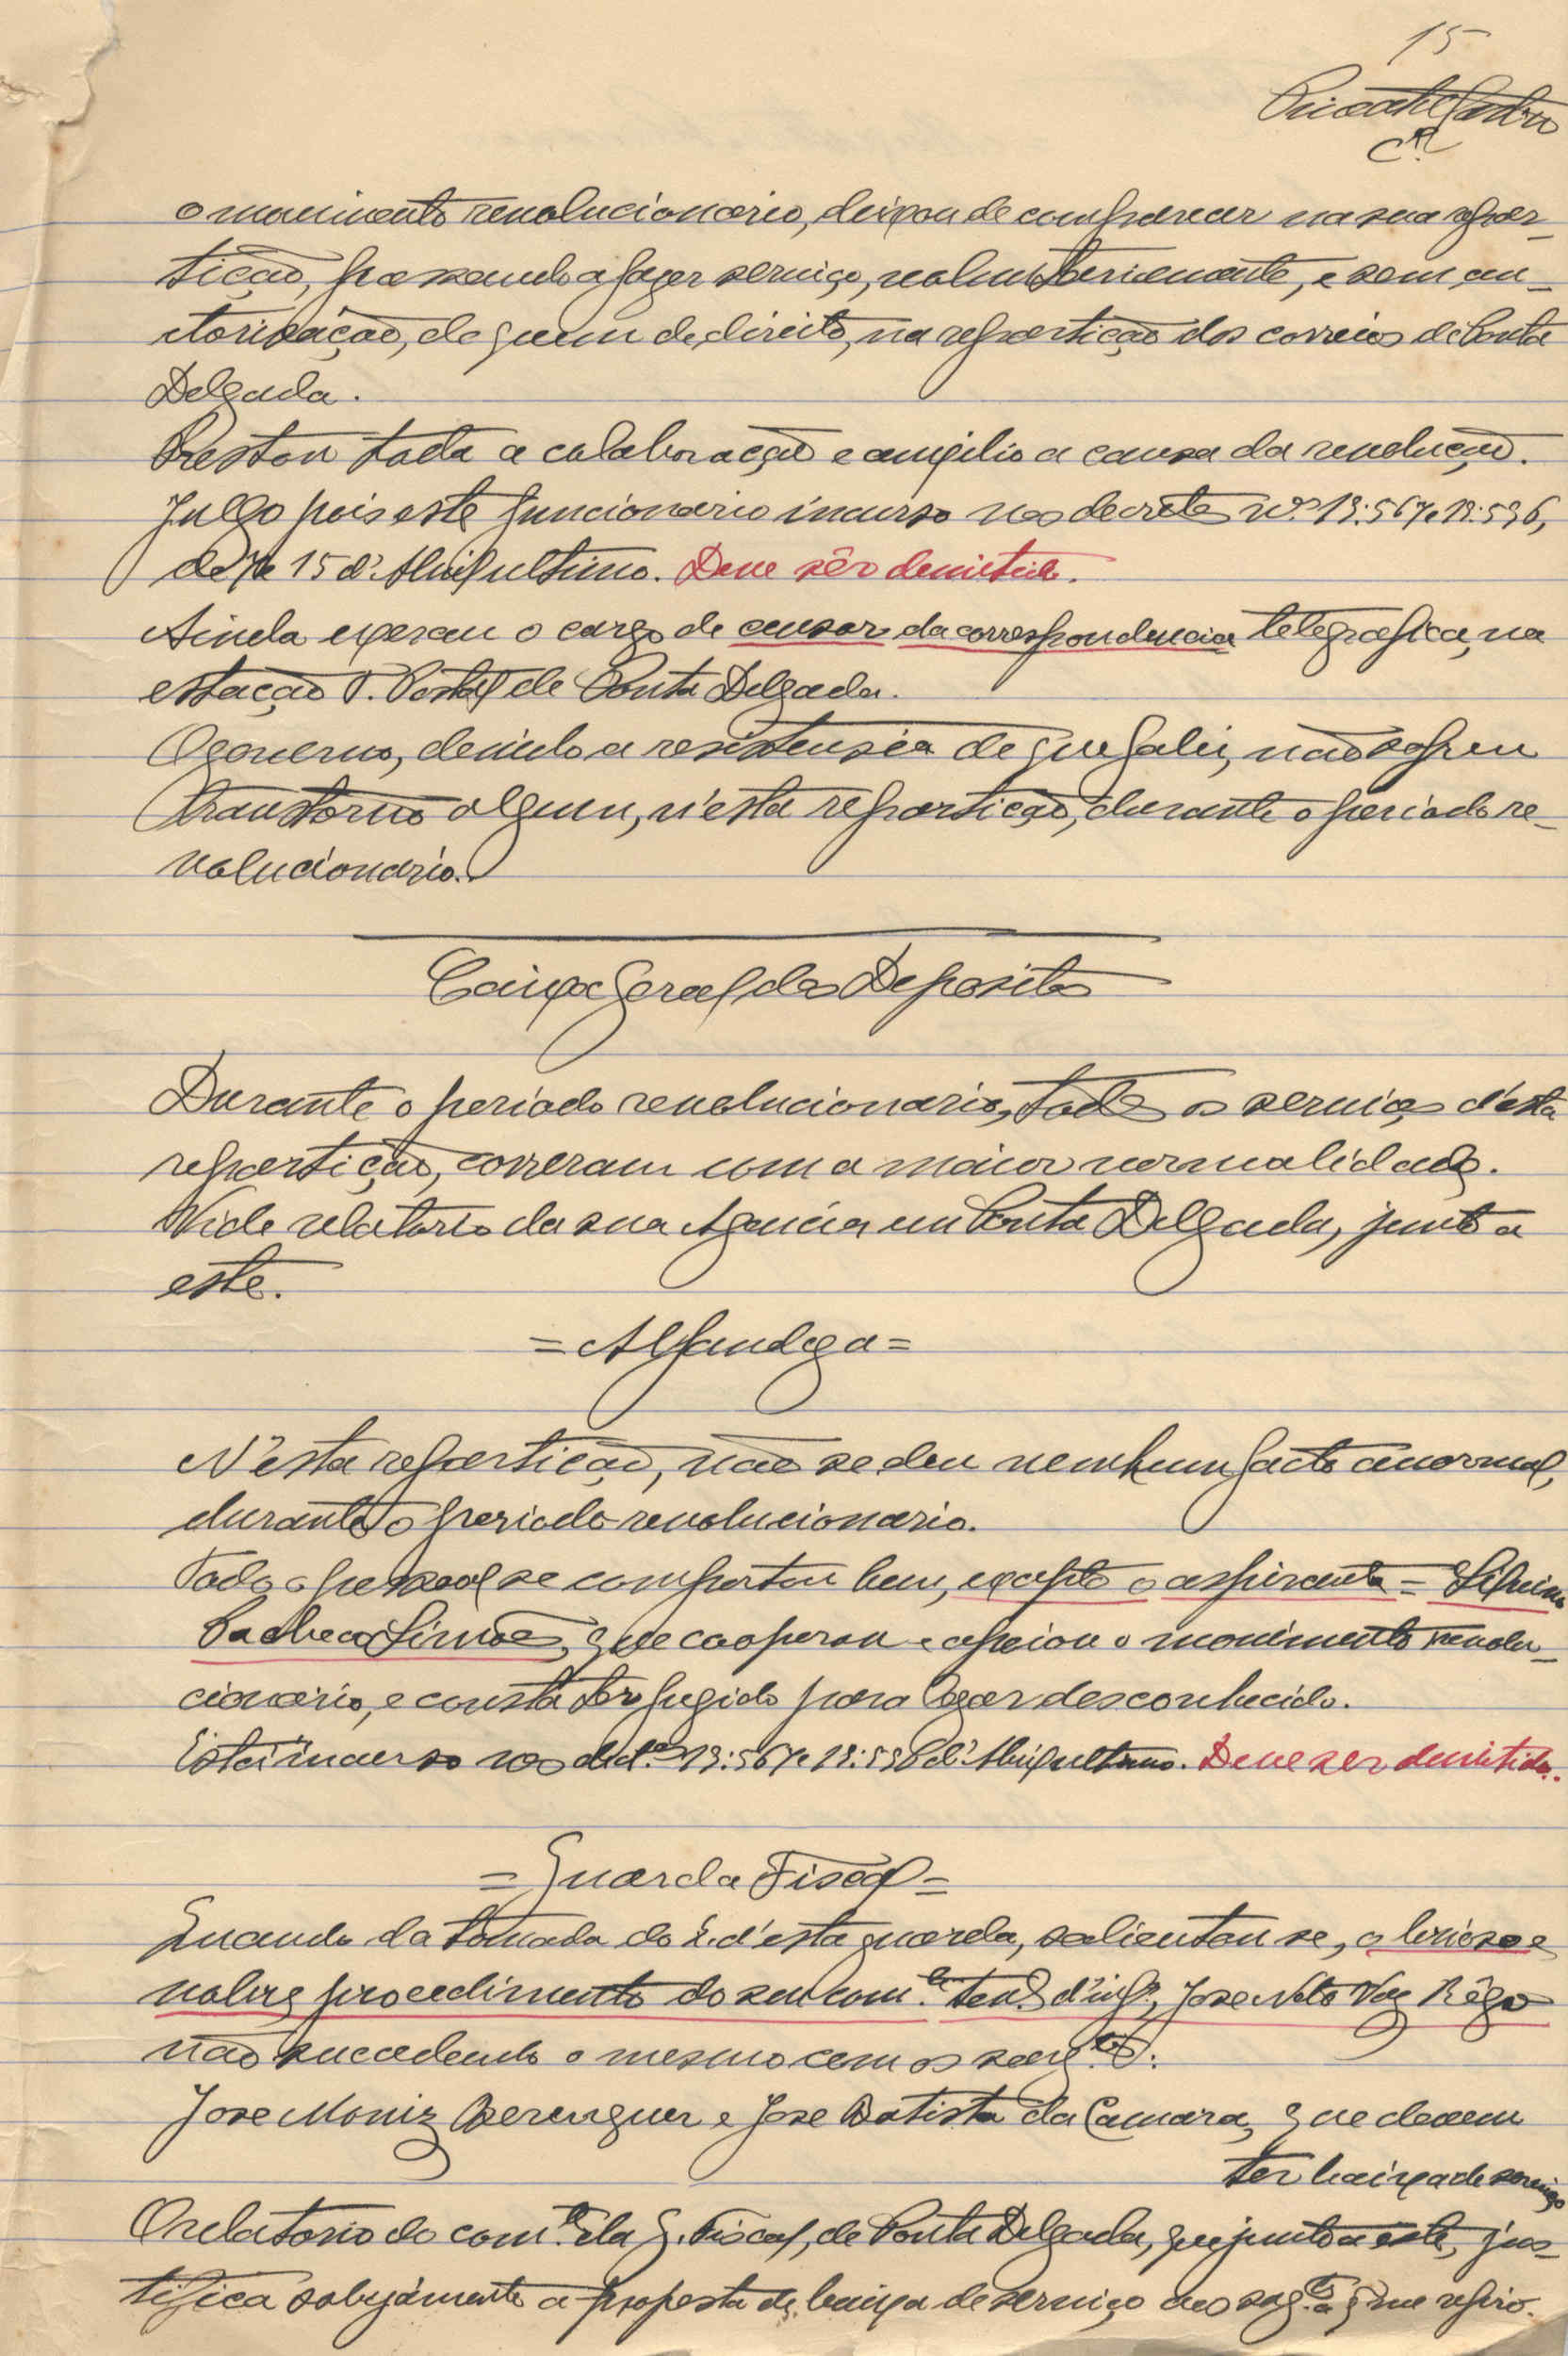 15
o movimento revolucionario, deixou de comparecer na sua repar-
tição, passando a fazer serviço, voluntariamente, e sem au-
torisação, de quem de direito, na repartição dos correios de Ponta
Delgada.
Prestou toda a colaboração e auxilio a causa da revolução.
Julgo pois este funcionario incurso nos decretos nºs 19:567 e 19:596,
de 7 e 15 d'Abril ultimo. Deve sêr demitido.
Ainda exerceu o cargo de censor da correspondencia telegrafica, na
estação T. Postal de Ponta Delgada.
O governo, devido a resistensia de que falei, não sofreu
transtorno algum, n'esta repartição, durante o periodo re-
volucionario.
Caixa Geral dos Depositos
Durante o periodo revolucionario, todos os serviços d'esta
repartição, correram com a maior normalidade.
Vide relatorio da sua Agencia em Ponta Delgada, junto a
este.
= Alfandega =
N'esta repartição, não se deu nenhum facto anormal,
durante o periodo revolucionario.
Todo o pessoal se comportou bem, excepto o aspirante =
Pacheco Simões, que cooperou e apoiou o movimento revolu-
cionario, e consta ter fugido para logar desconhecido.
Está incurso nos dect.os 19:567 e 19:596 d'Abril ultimo. Deve ser demitido.
= Guarda Fiscal =
Quando da tomada do Q. d'esta guarda, salientou se, o brioso e
nobre procedimento do seu com.te ten.e d'inf.a, Jose Neto Vaz Rêgo
não sucedendo o mesmo com os sarg.tos:
Jose Moniz Berenguer e Jose Batista da Camara, que devem
ter baixa de serviço
O relatorio do com.te da G. Fiscal, de Ponta Delgada, que junto a este, jus-
tifica sobejamente a proposta de baixa de serviço aos sarg.tos a que refiro.